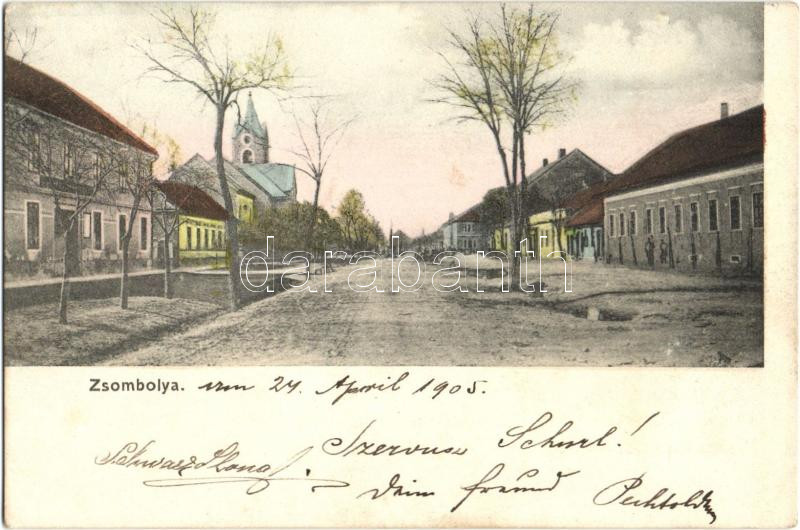 darabanth
Zsombolya. am 24. April 1905.
Szervusz Schurl!
Schwarz Ilona
Dein freund Pechtold